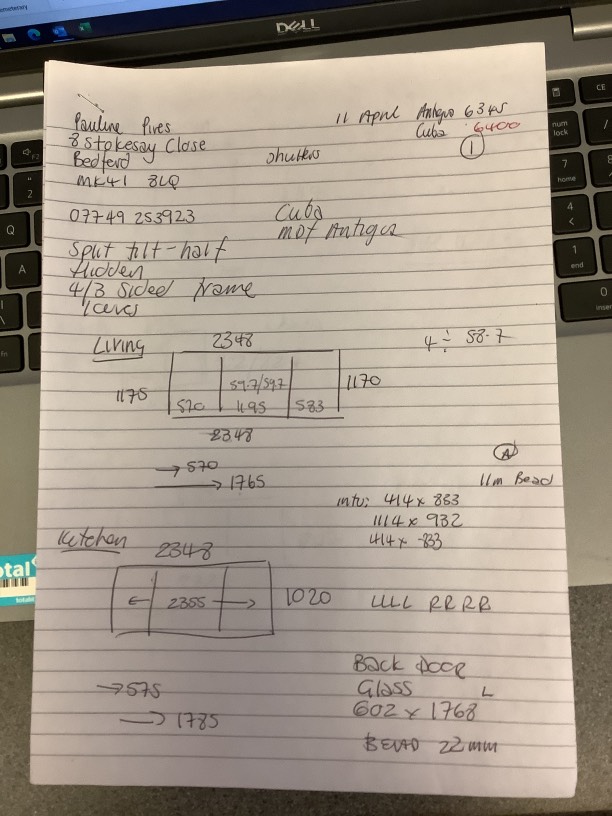 DELL
Pauline Pires
8 Stokesay Close
Bedford
MK41 8LQ
11 April
Antigua 6345
Cuba 6400
1
Shutters
07749 253923
Cuba
MDF Antigua
Split tilt-half
Hidden
4/3 Sided frame
Living
2348
4 ÷ 58.7
1175
570
59.7/59.7
1195
583
1170
2348
→570
→1765
A
11m Bead
414 x 883
1114 x 932
414 x 833
Kitchen
2348
← 2355 →
1020
LLLL RRRR
→575
→1785
Back Door
Glass L
602 x 1768
22mm
total